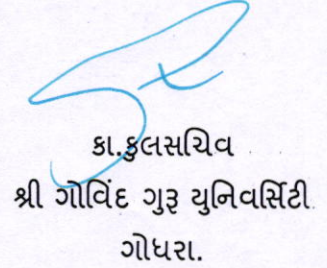 કા.કુલસચિવ
શ્રી ગોવિંદ ગુરૂ યુનિવર્સિટી
ગોધરા.